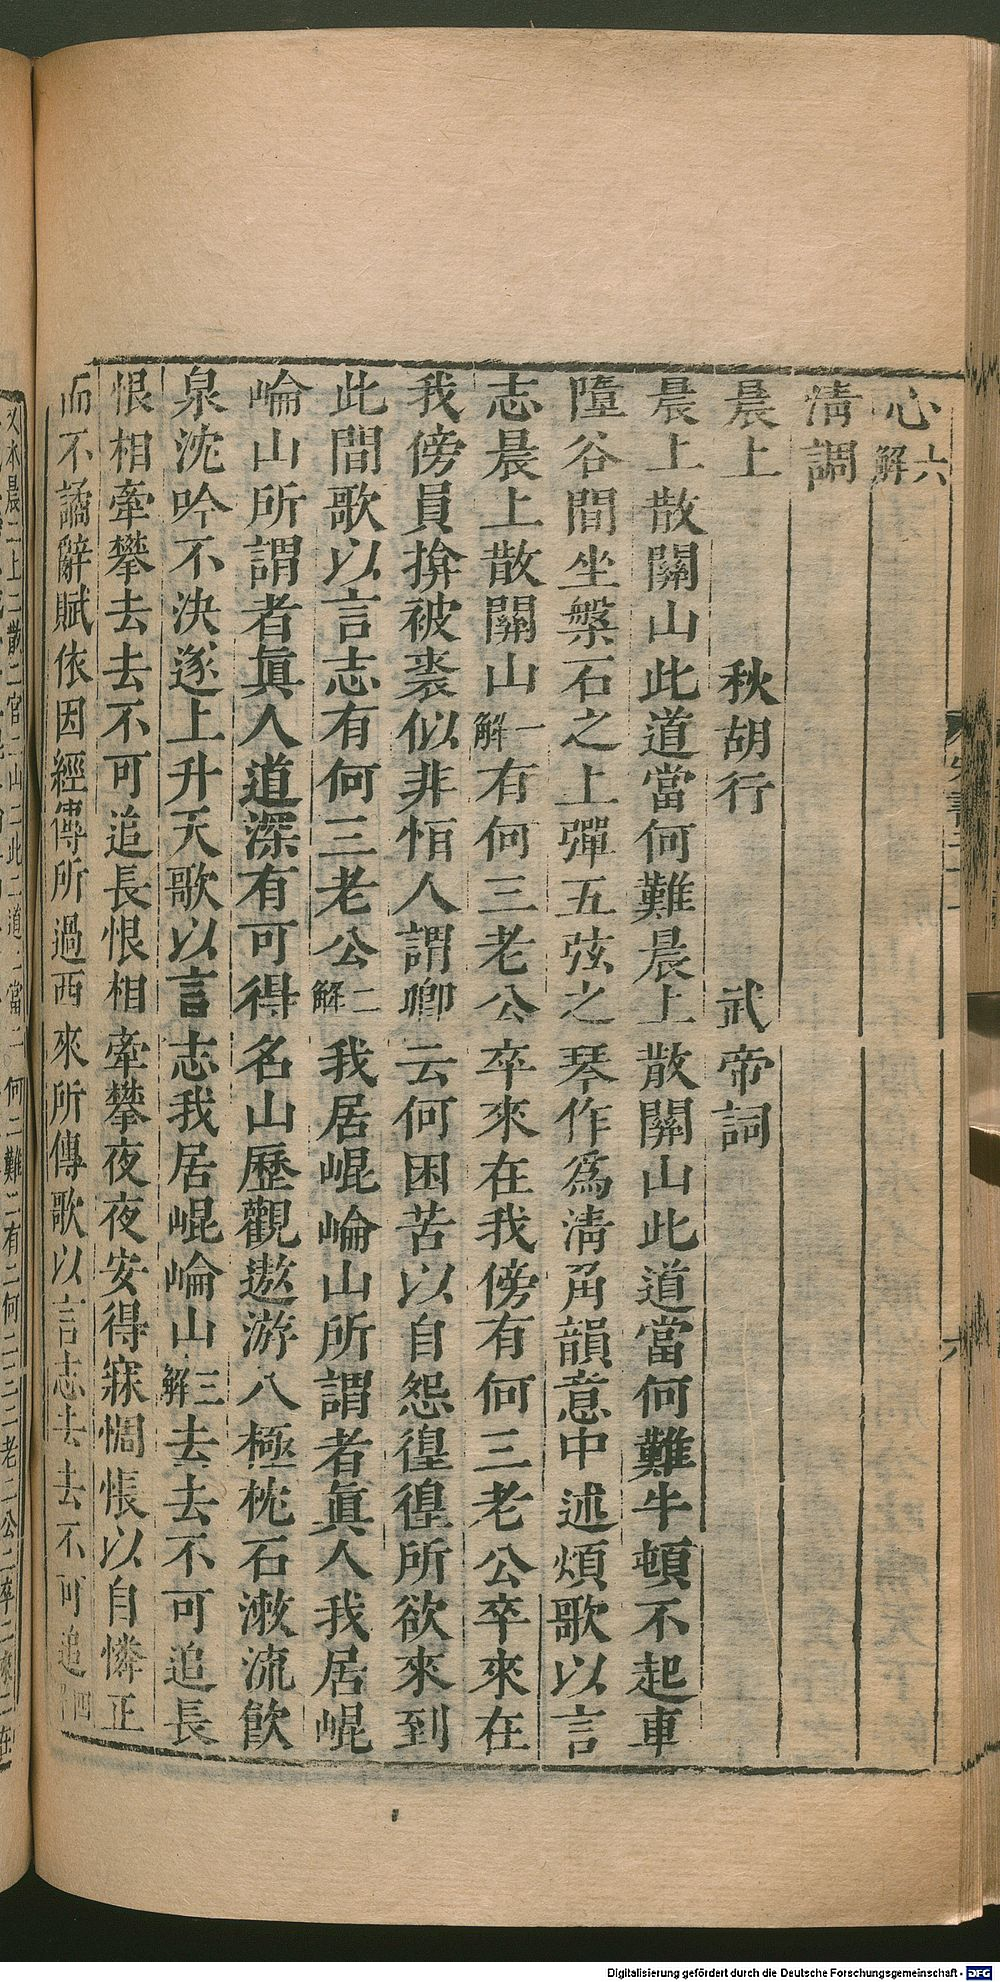 心六解
清調
晨上 秋胡行 武帝詞
晨上散關山此道當何難晨上散關山此道當何難牛頓不起車
墮谷間坐槃石之上彈五弦之琴作爲清角韻意中述煩歌以言
志晨上散關山一解有何三老公卒來在我傍有何三老公卒來在
我傍員揜被裘似非恒人謂卿云何困苦以自怨徨徨所欲來到
此間歌以言志有何三老公二解我居崐崘山所謂者眞人我居崐
崘山所謂者眞人道深有可得名山歷觀遨游八極枕石潄流飮
泉沈吟不決遂上升天歌以言志我居崐崘山三解去去不可追長
恨相牽攀去去不可追長恨相牽攀夜夜安得寐惆悵以自憐正
而不譎辭賦依因經傳所過西來所傳歌以言志去去不可追四解
又本晨二上二散二官二山二此二道二當二何二難二有二何二三二老二公二卒二來二在
Digitalisierung gefördert durch die Deutsche Forschungsgemeinschaft - DFG